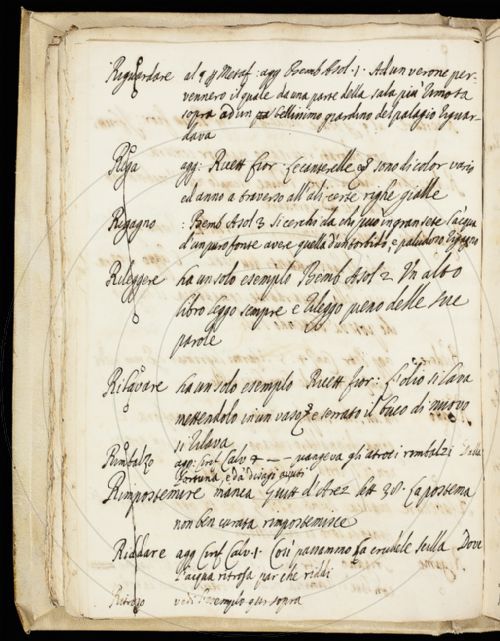 Riguardare al 9 § Metaf: agg Bemb Asol · 1 · Ad un verone per-
vennero il quale da una parte della sala più rimota
sopra ad un bellissimo giardino del palagio riguar-
dava
Riga agg: Ricett Fior · Le canterelle sono di color vario
ed anno a traverso all'ali certe righe gialle
Rigagno : Bemb Asol 3 Si cerchi da chi può in gran sete l'acqua
d'un puro fonte avere quella d'un torbido, e paludoso rigagno
Rileggere ha un solo esemplo Bemb Asol 2 In alto
libro leggo sempre e rileggo pieno delle sue
parole
Rilavare ha un solo esemplo Ricett Fior: L'olio si lava
mettendolo in un vaso e serrato il buco di nuovo
si rilava
Rimbalzo agg: Cirif Calv piangeva gli atroci rimbalzi Della
Fortuna, e da disagi
Rimpostemire manca Guitt d'Arez lett 38 · La postema
non ben curata rimpostemisce
Riddare agg Cirif Calv · 1 · Così passammo la crudele Scilla Dove
l'acqua ritrosa par che riddi
Ritroso vedi l'esemplo qui sopra